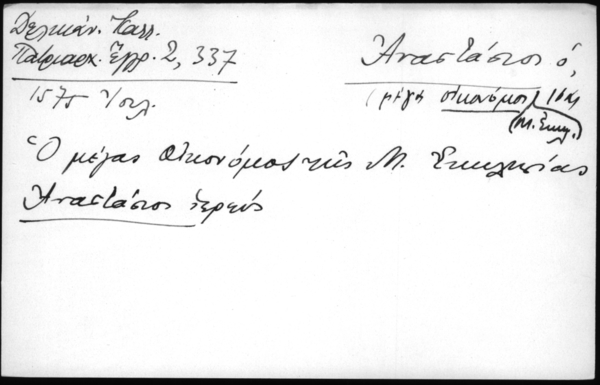 Δελικάν. Καλλ.
Πατριαρχ. Ἔγγρ. 2, 337
1575 Ἰουλ.
Ἀναστάσιος ὁ,
(μέγα οἰκονόμος)
(Μ. Ἐκκλ.)
Ὁ μέγας οἰκονόμος τῆς Μ. Ἐκκλησίας
Ἀναστάσιος ἱερεύς